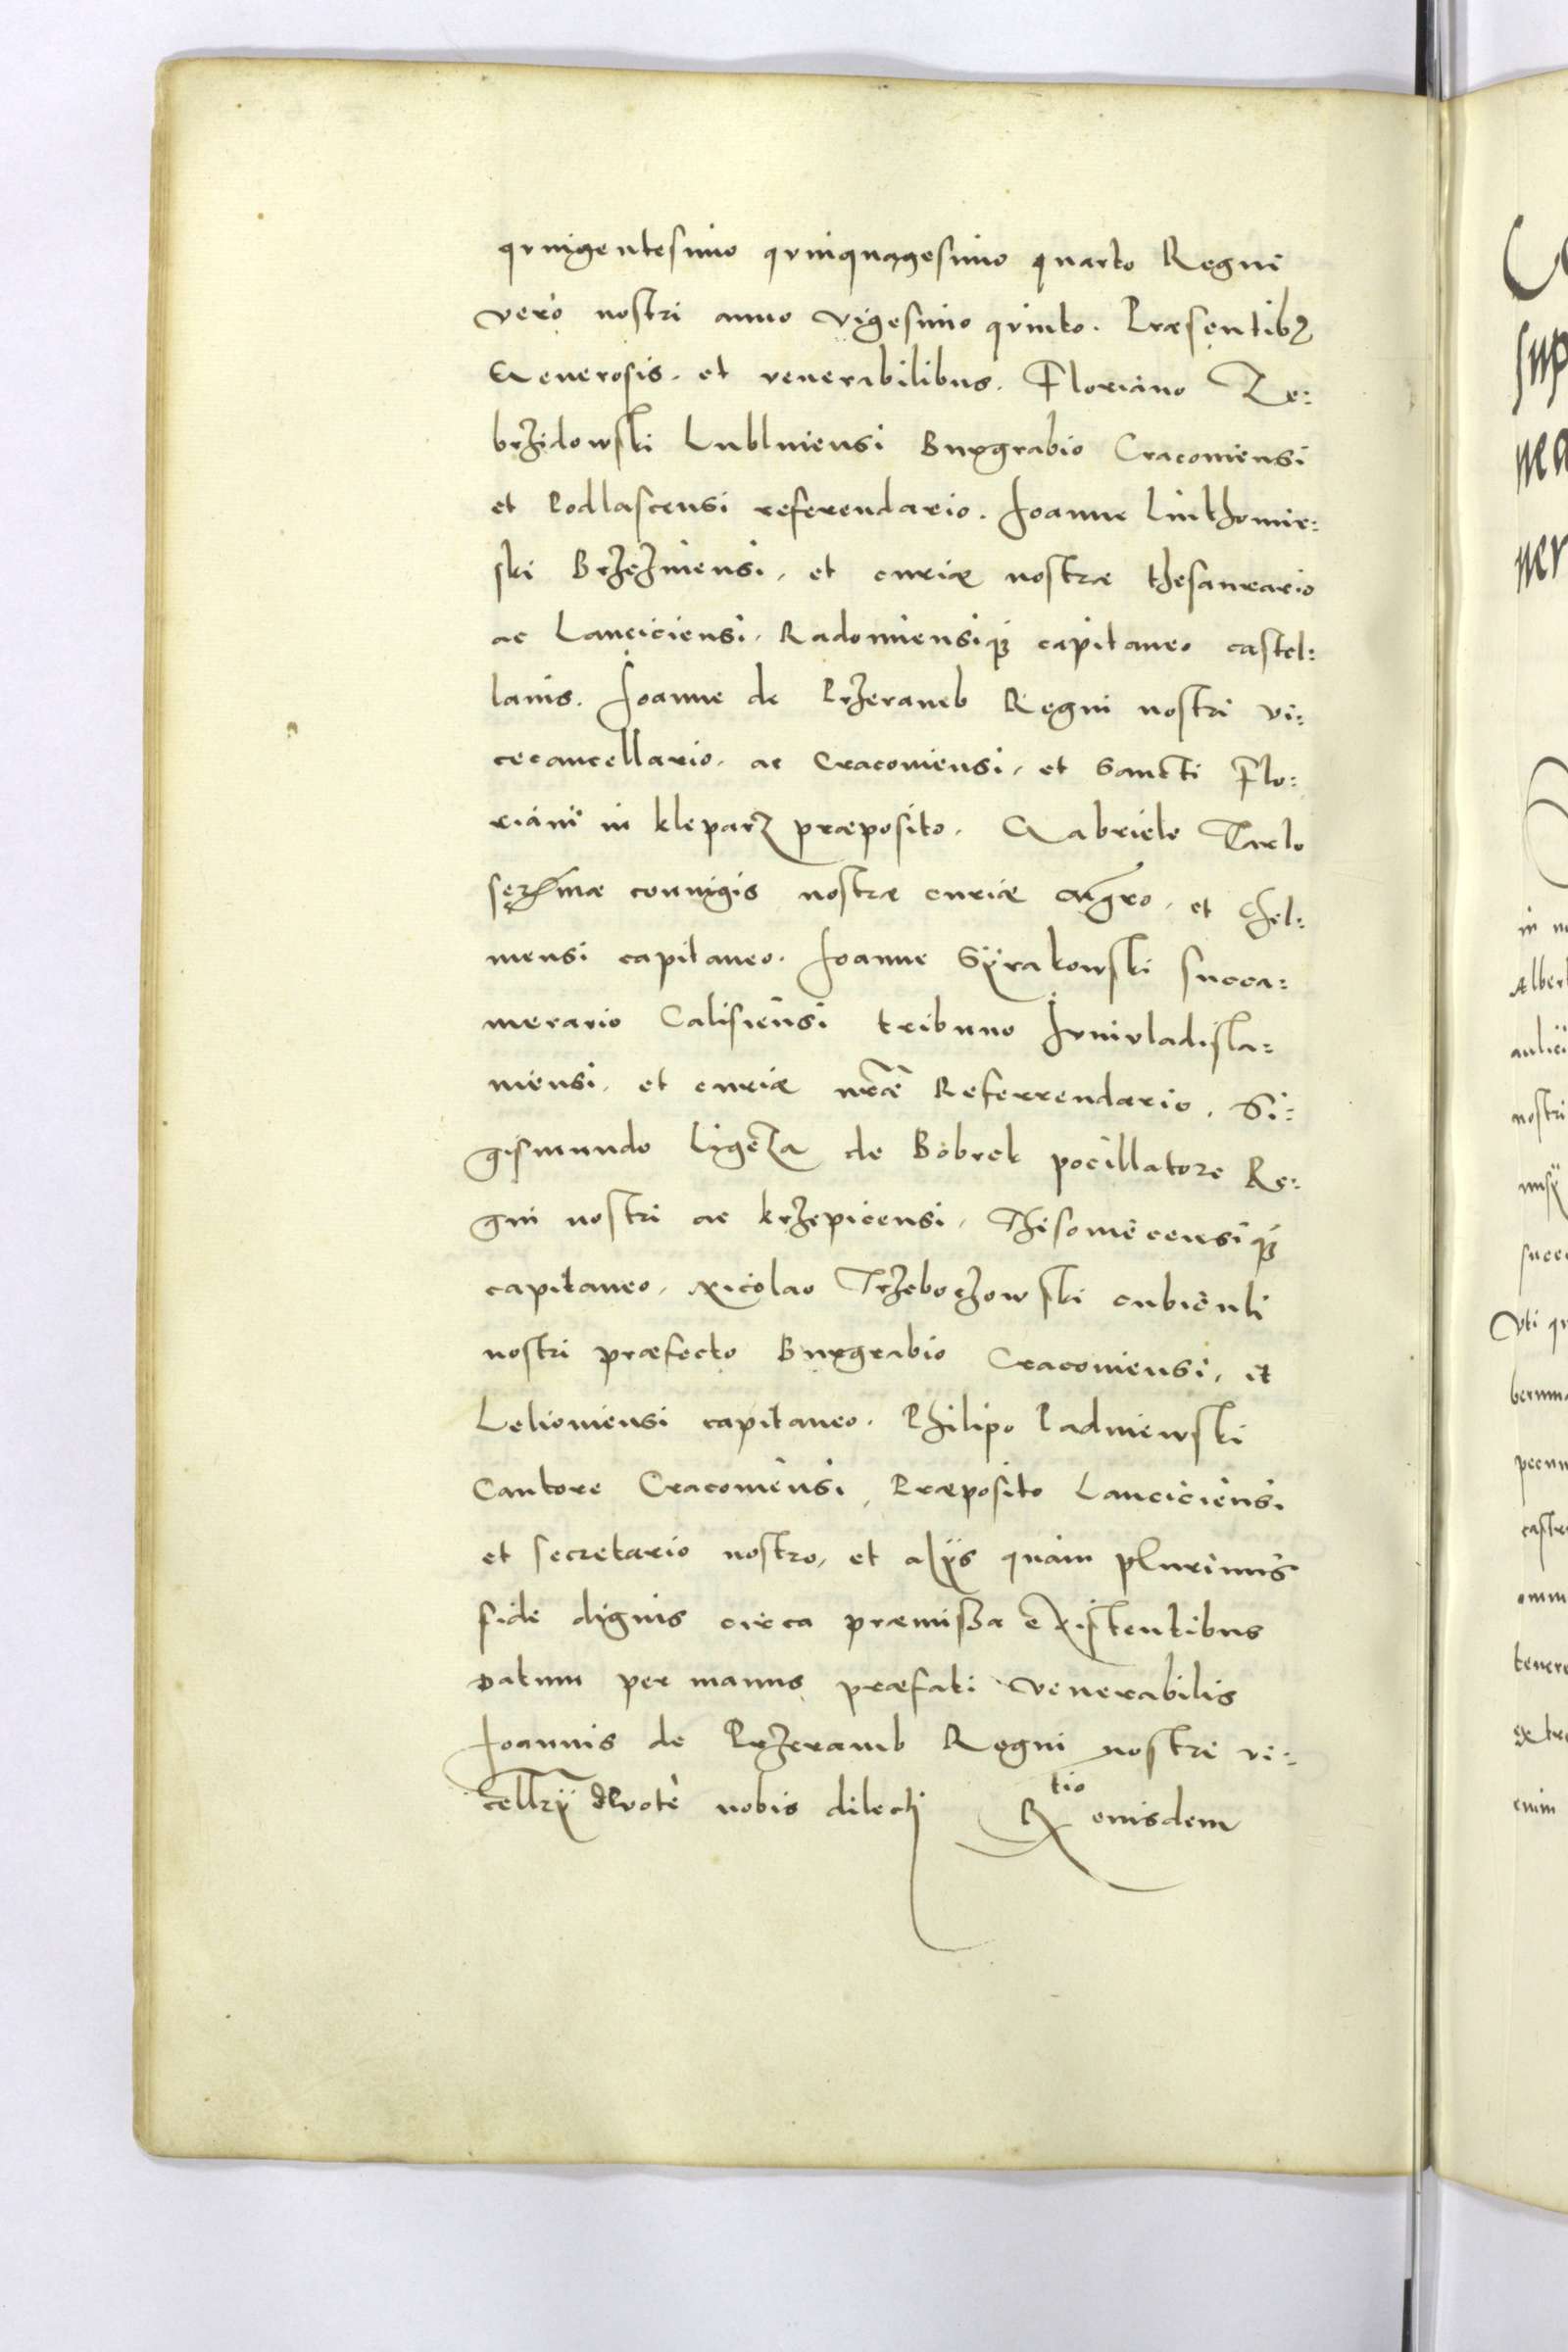 quingentesimo quinquagesimo quarto Regni
vero nostri anno vigesimo quinto. Præsentibꝫ
Generosis. et venerabilibus. Floriano Ze:
brzidowski Lublinensi Burgrabio Cracoviensi
et Podlascensi referendario. Joanne Linthomir:
ski Brzezinensi, et curiæ nostræ thesaurario
ac Lanciciensi, Radomiensiqꝫ capitaneo castel:
lanis. Joanne de Przeramb Regni nostri vi:
cecancellario, ac Cracoviensi, et Sancti Flo:
riani in kleparz præposito. Gabriele Tarlo
serᵐæ coniugis nostræ curiæ Mgro, et Chel:
mensi capitaneo. Joanne Syrakowski succa:
merario Calisiensi tribuno Junivladisla:
viensi, et curiæ nræ Referrendario. Si:
gismundo Ligeza de Bobrek pocillatore Re:
gni nostri ac krzepicensi, Thisomecensiqꝫ
capitaneo, Nicolao Trzebochowski cubiculi
nostri præfecto Burgrabio Cracoviensi, et
Leloviensi capitaneo. Philipo Padniewski
Cantore Cracoviensi, Præposito Lanciciensi
et secretario nostro, et alÿs quàm plurimis
fide dignis circa præmissa existentibus
Datum per manus præfati venerabilis
Joannis de Przeramb Regni nostri vi:
cellrÿ devote nobis dilecti Rtio eiusdem
sup
in n
Alber
aulici
nostri
succ
Uti qu
pecun
castr
omni
tenere
extra
enim